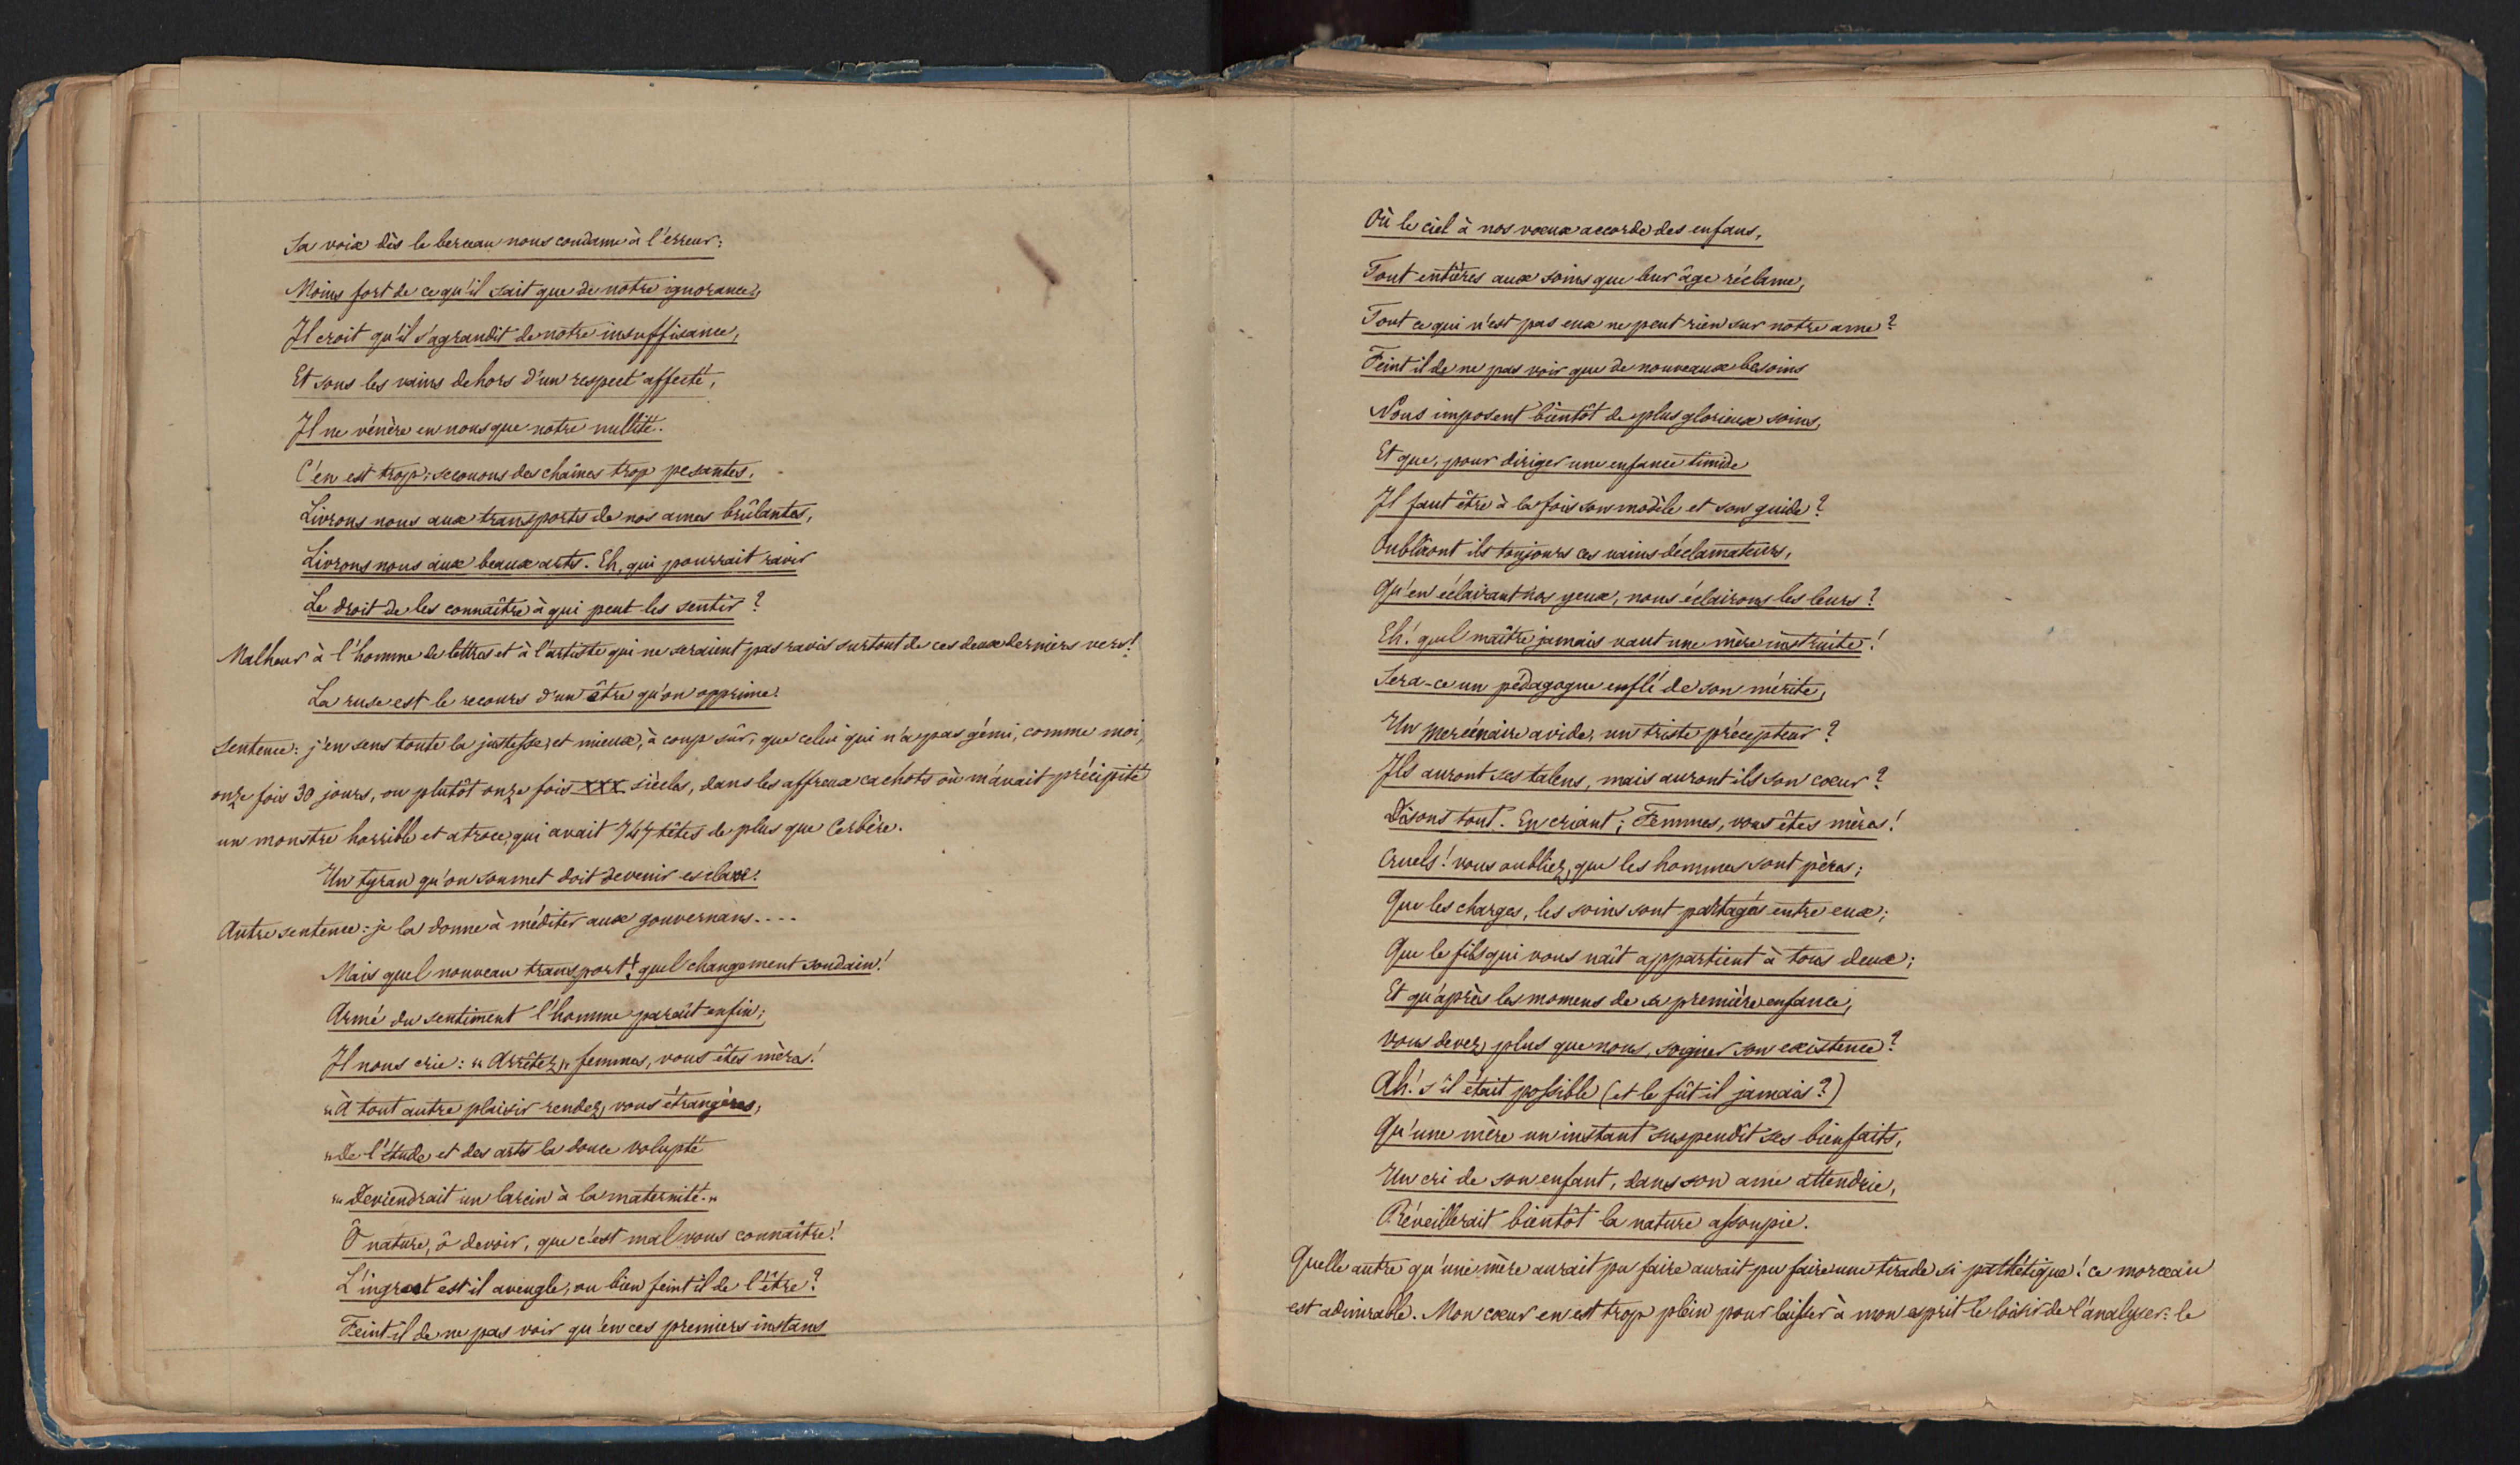 Sa voix dès le berceau nous condamne à l'erreur:
Moins fort de ce qu'il sait que de notre ignorance,
Il croit qu'il s'agrandit de notre insuffisance,
Et sous les vains dehors d'un respect affecté,
Il ne vénère en nous que notre nullité.
C'en est trop: secouons des chaînes trop pesantes,
Livrons nous aux transports de nos ames brûlantes,
Livrons nous aux beaux arts. Eh, qui pourrait ravir
Le droit de les connaître à qui peut les sentir?
Malheur à l'homme de lettres et à l'artiste qui ne seraient pas ravis surtout de ces deux derniers vers!
La ruse est le recours d'un être qu'on opprime.
Sentence: j'en sens toute la justesse, et mieux, à coup sûr, que celui qui n'a pas gémi, comme moi,
onze fois 30 jours, ou plutôt onze fois XXX siècles, dans les affreux cachots où m'avait précipité
un monstre horrible et atroce, qui avait 747 têtes de plus que Cerbère.
Un tyran qu'on soumet doit devenir esclave.
Autre sentence: je la donne à méditer aux gouvernans....
Mais quel nouveau transport! quel changement soudain!
Armé du sentiment l'homme paraît enfin;
Il nous crie: « Arrêtez, femmes, vous êtes mères!
« À tout autre plaisir rendez vous étrangères,
« De l'étude et des arts la douce volupté
« Deviendrait un larcin à la maternité. »
Ô nature, ô devoir, que c'est mal vous connaître!
L'ingrat est il aveugle, ou bien feint il de l'être?
Feint il de ne pas voir qu'en ces premiers instans
Où le ciel à nos vœux accorde des enfans,
Tout entières aux soins que leur âge réclame,
Tout ce qui n'est pas eux ne peut rien sur notre ame?
Feint il de ne pas voir que de nouveaux besoins
Nous imposent bientôt de plus glorieux soins,
Et que, pour diriger une enfance timide
Il faut être à la fois son modèle et son guide?
Oublieront ils toujours ces vains déclamateurs,
Qu'en éclairant nos yeux, nous éclairons les leurs?
Eh! quel maître jamais vaut une mère instruite!
Sera-ce un pédagogue enflé de son mérite,
Un mercénaire avide, un triste précepteur?
Ils auront ses talens, mais auront ils son cœur?
Disons tout. En criant; Femmes, vous êtes mères!
Cruels! vous oubliez, que les hommes sont pères;
Que les charges, les soins sont partagés entre eux;
Que le fils qui vous naît appartient à tous deux;
Et qu'après les momens de sa première enfance,
Vous devez, plus que nous, soigner son existence?
Ah! s'il était possible (et le fût il jamais?)
Qu'une mère un instant suspendît ses bienfaits,
Un cri de son enfant, dans son ame attendrie,
Réveillerait bientôt la nature assoupie.
Quelle autre qu'une mère aurait pu faire aurait pu faire une tirade si pathétique! ce morceau
est admirable. Mon cœur en est trop plein pour laisser à mon esprit le loisir de l'analyser: le